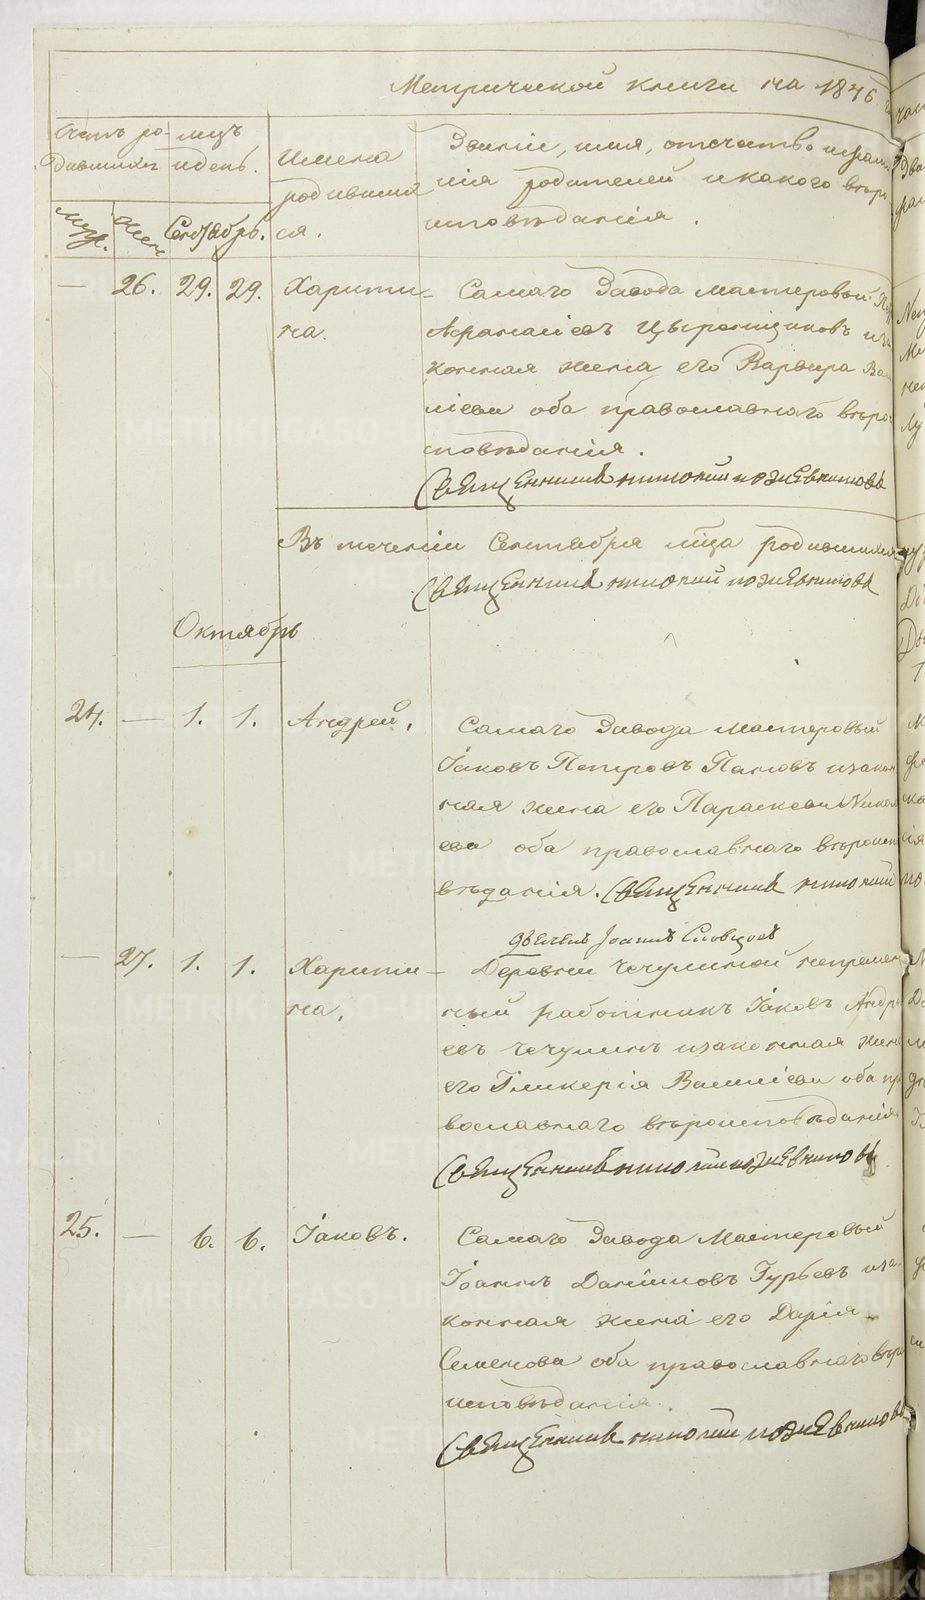 Метрической книги на 1846
Счетъ ро- мцъ
дившихъ и день.
Имена
родивших
ся.
Званіе, имя, отчество и фами
лія родителей и какого веро
исповѣданія.
муж. жен Сентябрь.
— 26. 29. 29. Харити-
на.
Самаго Завода мастеровый
Афанасіевъ Цыренщиковъ и за
конная жена его Варвара Ва
сіева оба православнаго вѣро
исповѣданія.
Священникъ
Въ теченіи Сентября мца родившихся
Священникъ
Октябрь
24. — 1. 1. Андрей.
Самаго Завода мастеровый
Іаковъ Петровъ Пановъ и закон
ная жена его Параскева Никол
ева оба православнаго вѣроис
вѣданія. Священникъ
дьячекъ Іоаннъ Словцовъ
— 27. 1. 1. Харити-
на.
Деревни Чечулиной непремен
ный работникъ Іаковъ Андре
евъ Чечулинъ и законная жена
его Гликерія Василіева оба пра
вославнаго вѣроисповѣданія
Священникъ
25. — 6. 6. Іаковъ.
Самаго Завода Мастеровый
Іоаннъ Даніиловъ Гурьевъ и за
конная жена его Дарія
Семенова оба православнаго вѣро
исповѣданія.
Священникъ
METRIKI.GASO-URAL.RU